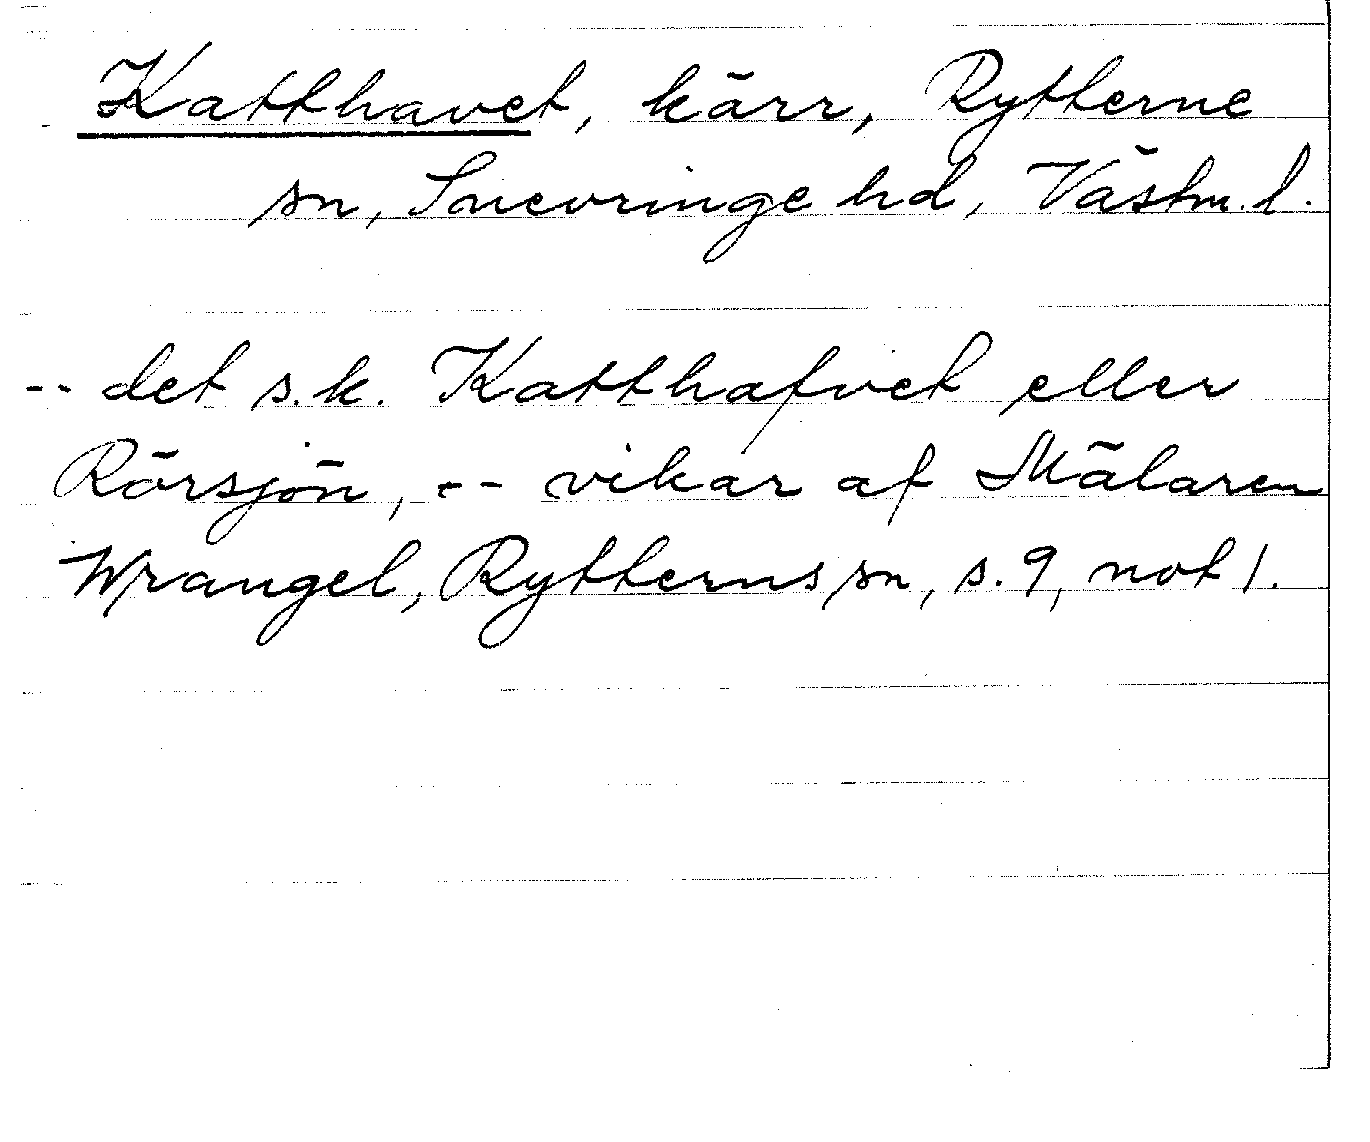 Katthavet, kärr, Rytterne
sn, Snevringe hd, Västm. l.
-- det s.k. Katthafvet eller
Rörsjön, -- vikar af Mälaren
Wrangel, Rytterns sn, s. 9, not 1.